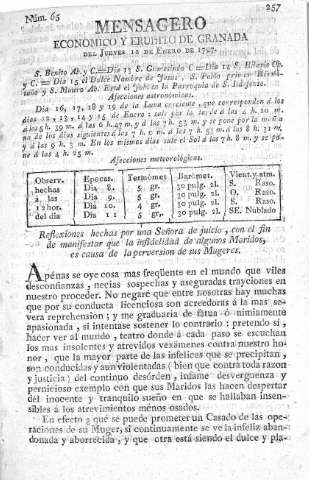 Núm. 65
257
MENSAGERO
ECONOMICO Y ERUDITO DE GRANADA
DEL JUEVES 12 DE ENERO DE 1797.
S. Benito Ab. y C.—Dia 13 S. Gumesindo C—Dia 14 S. Hilario Op.
y C. — Dia 15 el Dulce Nombre de Jesus, S. Pablo primer
y S. Mauro Ab. Está el jub. en la Parroquia de S. Ildefonso.
Afecciones astronomicas.
Dia 16, 17, 18 y 19 de la Luna creciente, que corresponden á los
dias 12, 13, 14 y 15 de Enero
Afecciones meteorológicas.
Observ. Epocas. Termómes Baromet. Vient. y atm.
hechas Dia 8. 5 gr. 30 pulg. 2l. S. Raso.
á las Dia 9. 5 gr. 30 pulg. 2l. O. Raso.
12 hor. Dia 10. 4 gr. 30 pulg. 2l. S. Raso.
del dia Dia 11 5 gr. 30 pulg. 2l. SE. Nublado
Reflexiones hechas por una Señora de juicio, con el fin
de manifestar que la infidelidad de algunos Maridos,
es causa de la perversion de sus Mugeres.
Apénas se oye cosa mas freqüente en el mundo que viles
desconfianzas, necias sospechas y aseguradas trayciones en
nuestro proceder. No negaré que entre nosotras hay muchas
que por su conducta licenciosa son acreedoras á la mas se-
vera reprehension; y me graduaria de fatua ó nimiamente
apasionada, si intentase sostener lo contrario: pretendo sí,
hacer ver al mundo, teatro donde á cada paso se escuchan
los mas insolentes y atrevidos vexámenes contra nuestro ho-
nor, que la mayor parte de las infelices que se precipitan,
son conducidas y aun violentadas (bien que contra toda razon
y justicia) del continuo desórden, infame desvergüenza y
pernicioso exemplo con que sus Maridos las hacen despertar
del inocente y tranquilo sueño en que se hallaban insen-
sibles á los atrevimientos ménos osados.
En efecto ¿ qué se puede prometer un Casado de las ope-
raciones de su Muger, si continuamente se ve la infeliz aban-
donada y aborrecida, y que otra está siendo el dulce y pla-